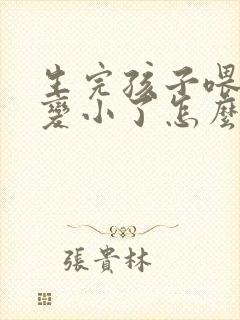 生完孩子喂
變小了怎麼
張貴林